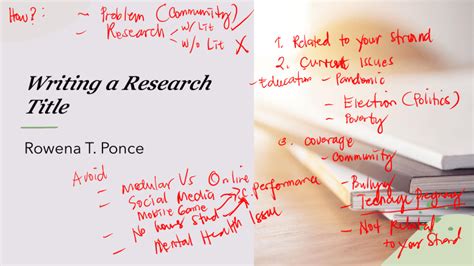 How?: - Problem (Community)
- Research w/ Lit
w/o Lit X
Writing a Research
Title
Rowena T. Ponce
Avoid
- Modular Vs Online
- Social Media
Mobile Game
performance
- No hours Stud
- Mental Health Issue
1. Related to your Strand
2. Current Issues
- Education - Pandemic
- Election (Politics)
- Poverty
3. Coverage
- Community
- Bullying
- Teenage Pregnancy
- Not Related
to your Strand